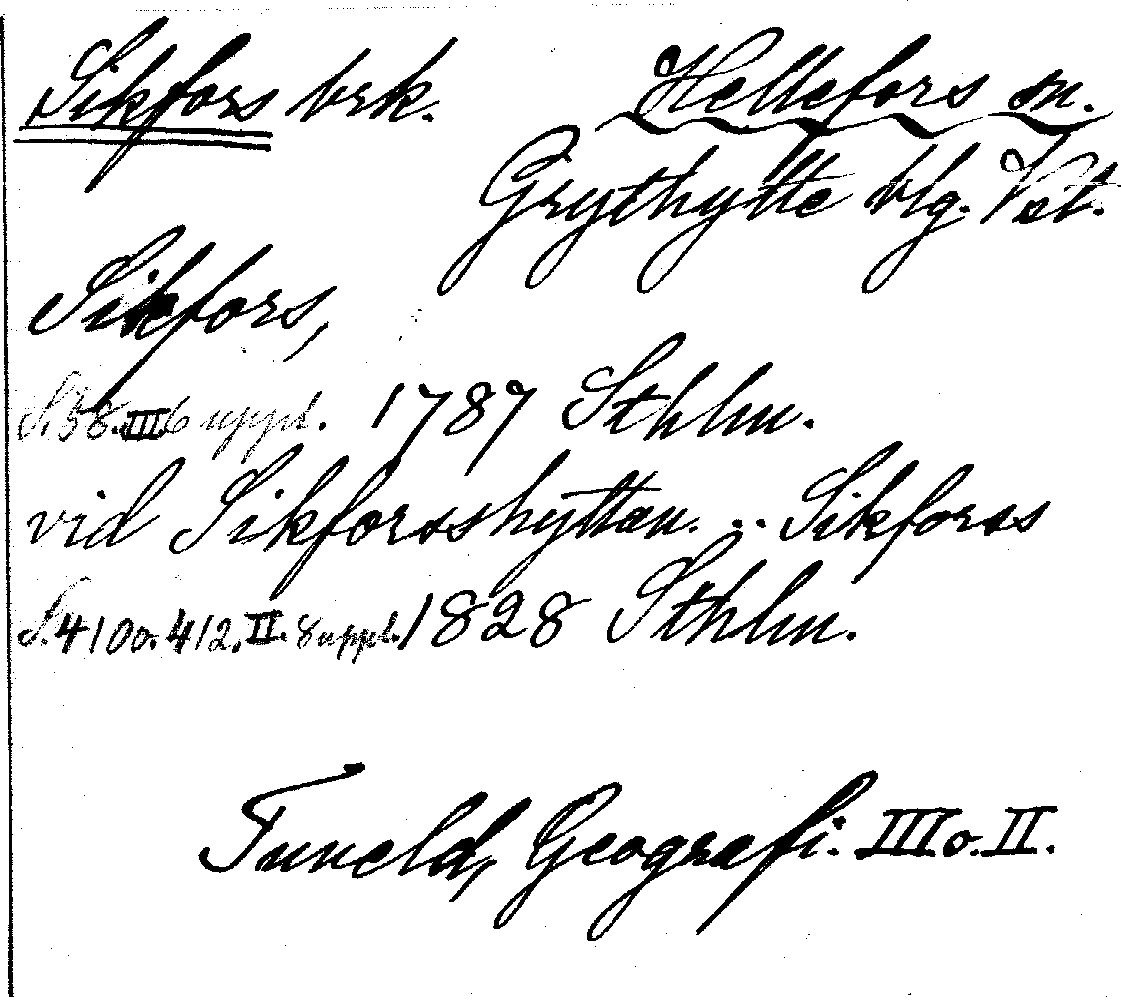 Sikfors brk. Hellefors sn.
Grythytte blg. Vst.
Sikfors,
S. 58. III 6 uppl. 1787 Sthlm.
vid Sikforsshyttan... Sikforss
S. 410 o. 412. II. 8 uppl. 1828 Sthlm.
Tuneld, Geografi. III o. II.